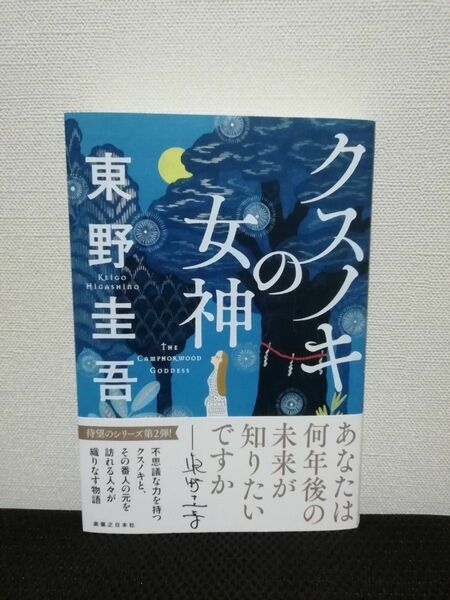 クスノキの
女神
東野圭吾
KEIGO
HIGASHINO
THE
CAMPHORWOOD
GODDESS
あなたは
何年後の
未来が
知りたい
ですか
──東野圭吾
待望のシリーズ第2弾!
不思議な力を持つ
クスノキと、
その番人の元を
訪れる人々が
織りなす物語
実業之日本社